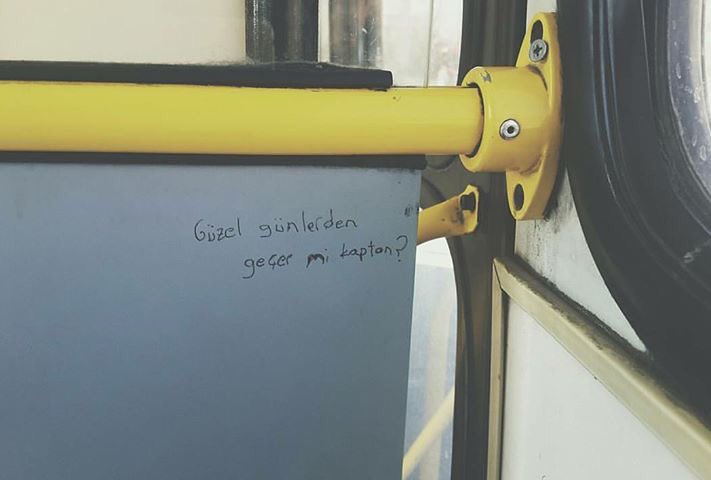 Güzel günlerden
geçer mi kaptan?